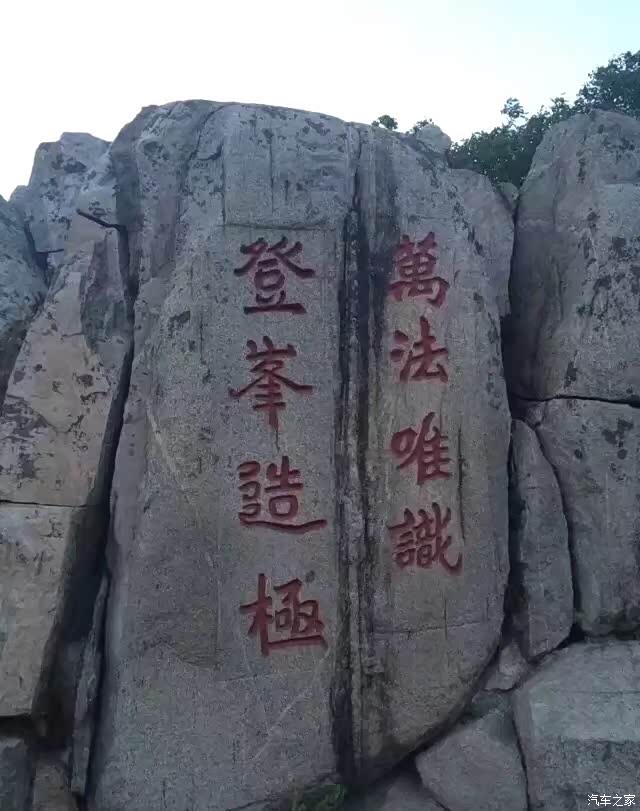 萬法唯識
登峯造極
汽车之家